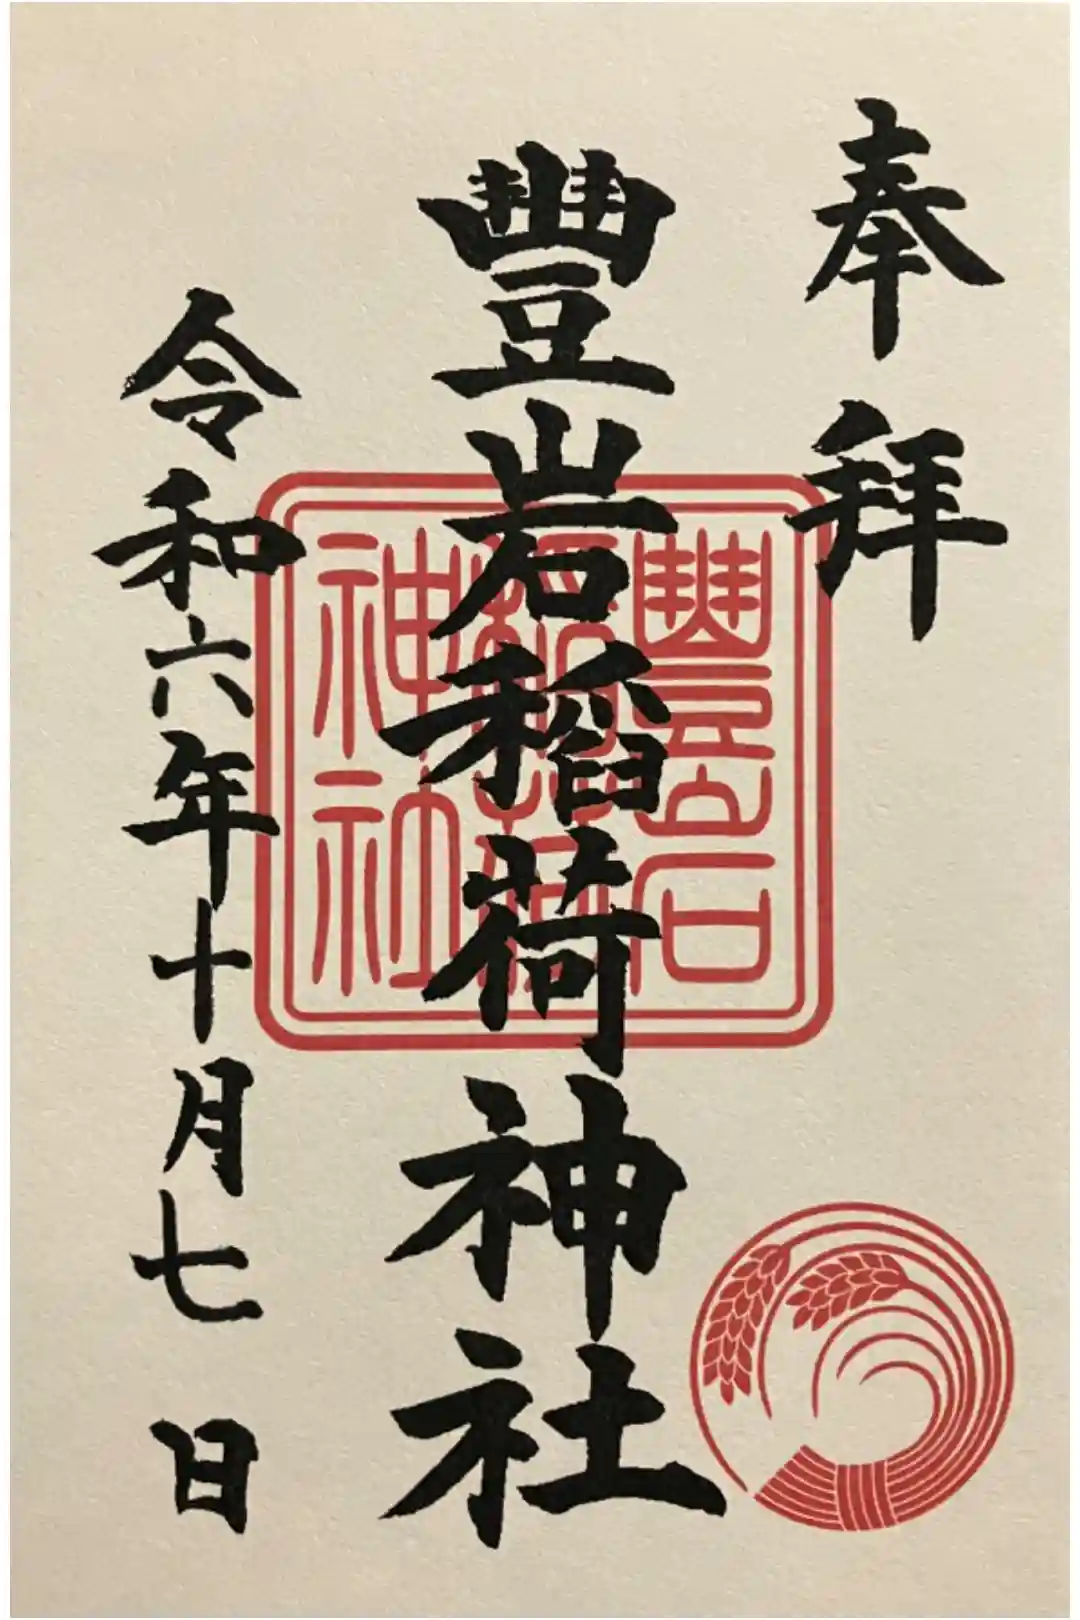 奉拝
豐岩稻荷神社
令和六年十月七日
豐岩
稻荷
神社